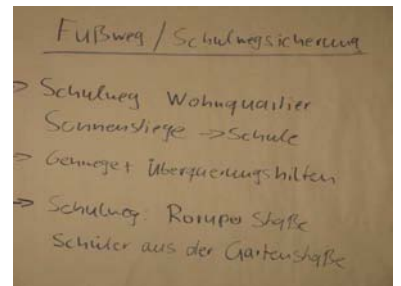 Fußweg / Schulwegsicherung
→ Schulweg Wohnquartier
Sonnenstiege → Schule
→ Gehwege + Überquerungshilfen
→ Schulweg: Roruper Staße
Schüler aus der Gartenstaße